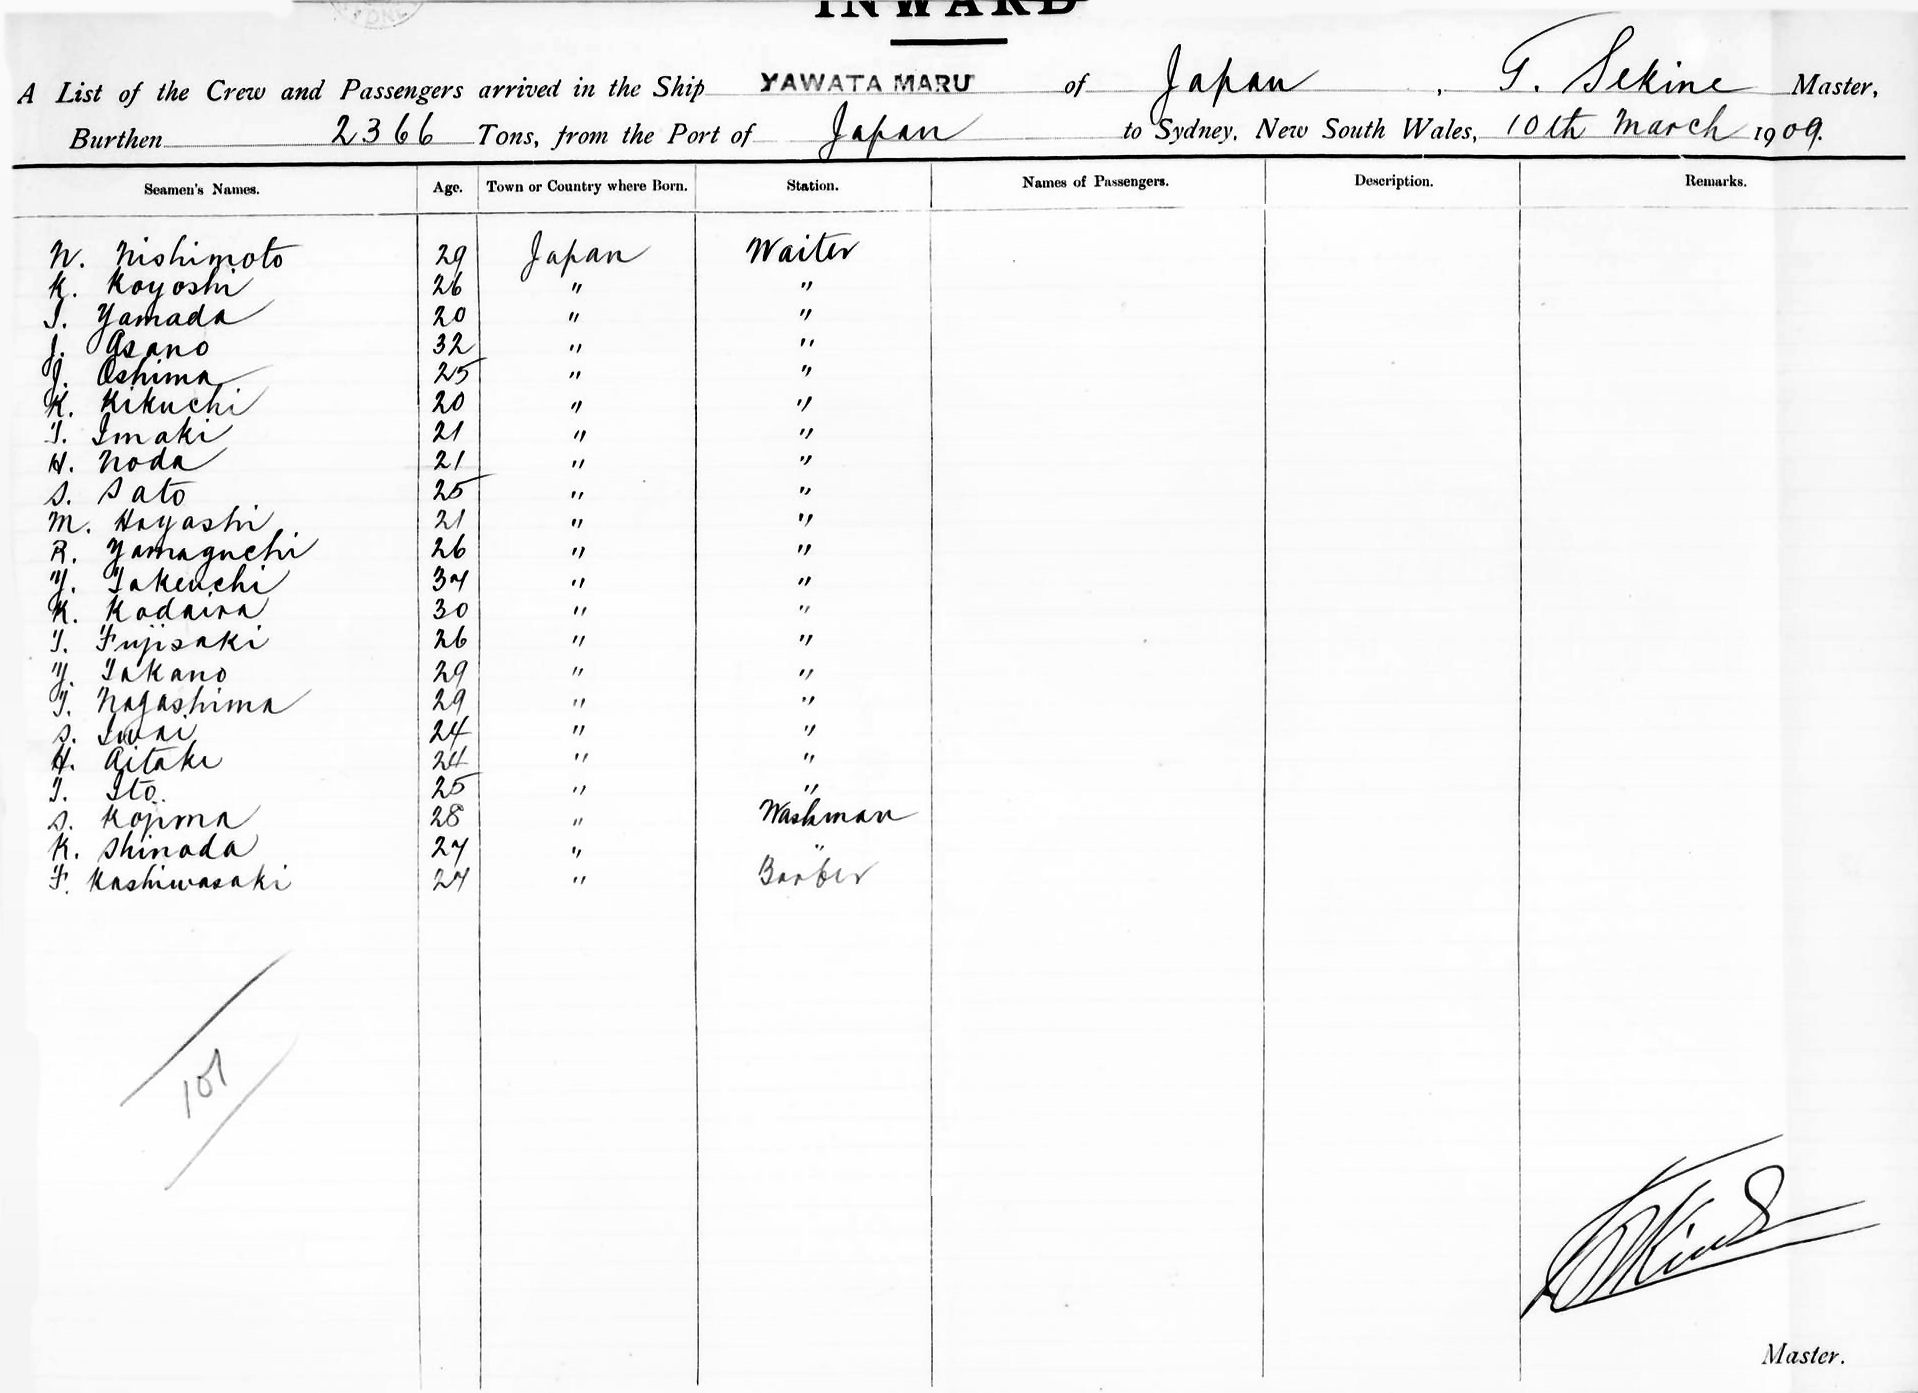 INWARD
A List of the Crew and Passengers arrived in the Ship YAWATA MARU of Japan, T. Sekine Master,
Burthen 2366 Tons, from the Port of Japan to Sydney, New South Wales, 10th March 1909.
Seamen's Names. Age. Town or Country where Born. Station. Names of Passengers. Description. Remarks.
N. Nishimoto 29 Japan Waiter
K. Koyoshi 26 " "
T. Yamada 20 " "
J. Asano 32 " "
J. Oshima 25 " "
K. Kikuchi 20 " "
T. Imaki 21 " "
H. Noda 21 " "
S. Sato 25 " "
M. Hayashi 21 " "
R. Yamaguchi 26 " "
Y. Takeuchi 37 " "
K. Kodaira 30 " "
T. Fujisaki 26 " "
Y. Takano 29 " "
T. Nagashima 29 " "
S. Iwai 24 " "
H. Aitaki 24 " "
T. Ito. 25 " "
S. Kojima 28 " Washman
K. Shinoda 27 " "
F. Kashiwasaki 27 " Barber
107
Master.